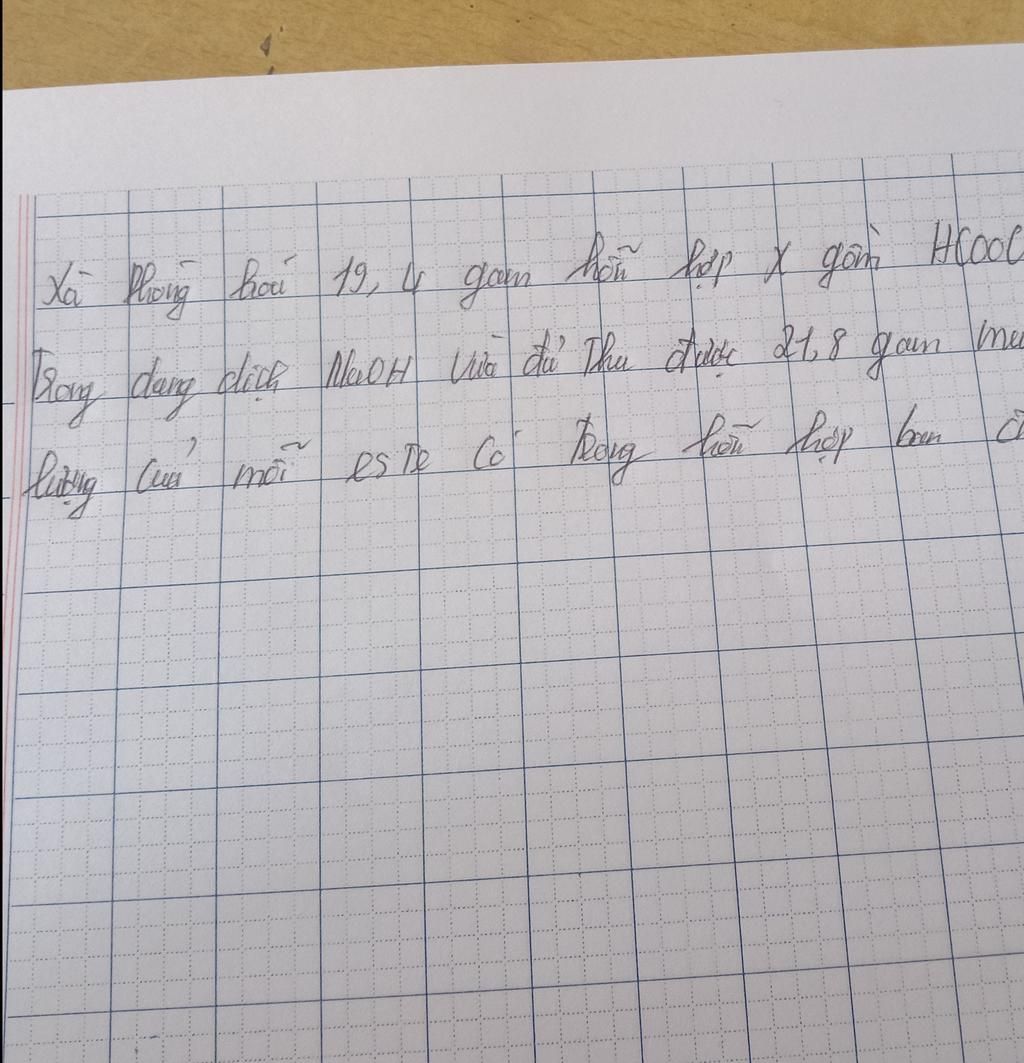 Xà Phòng hoá 19,4 gam hỗn hợp X gồm HCOOC
Trong dung dịch NaOH vừa đủ Thu được 21,8 gam mu
lượng của mỗi esTe có Trong hỗn hợp ban